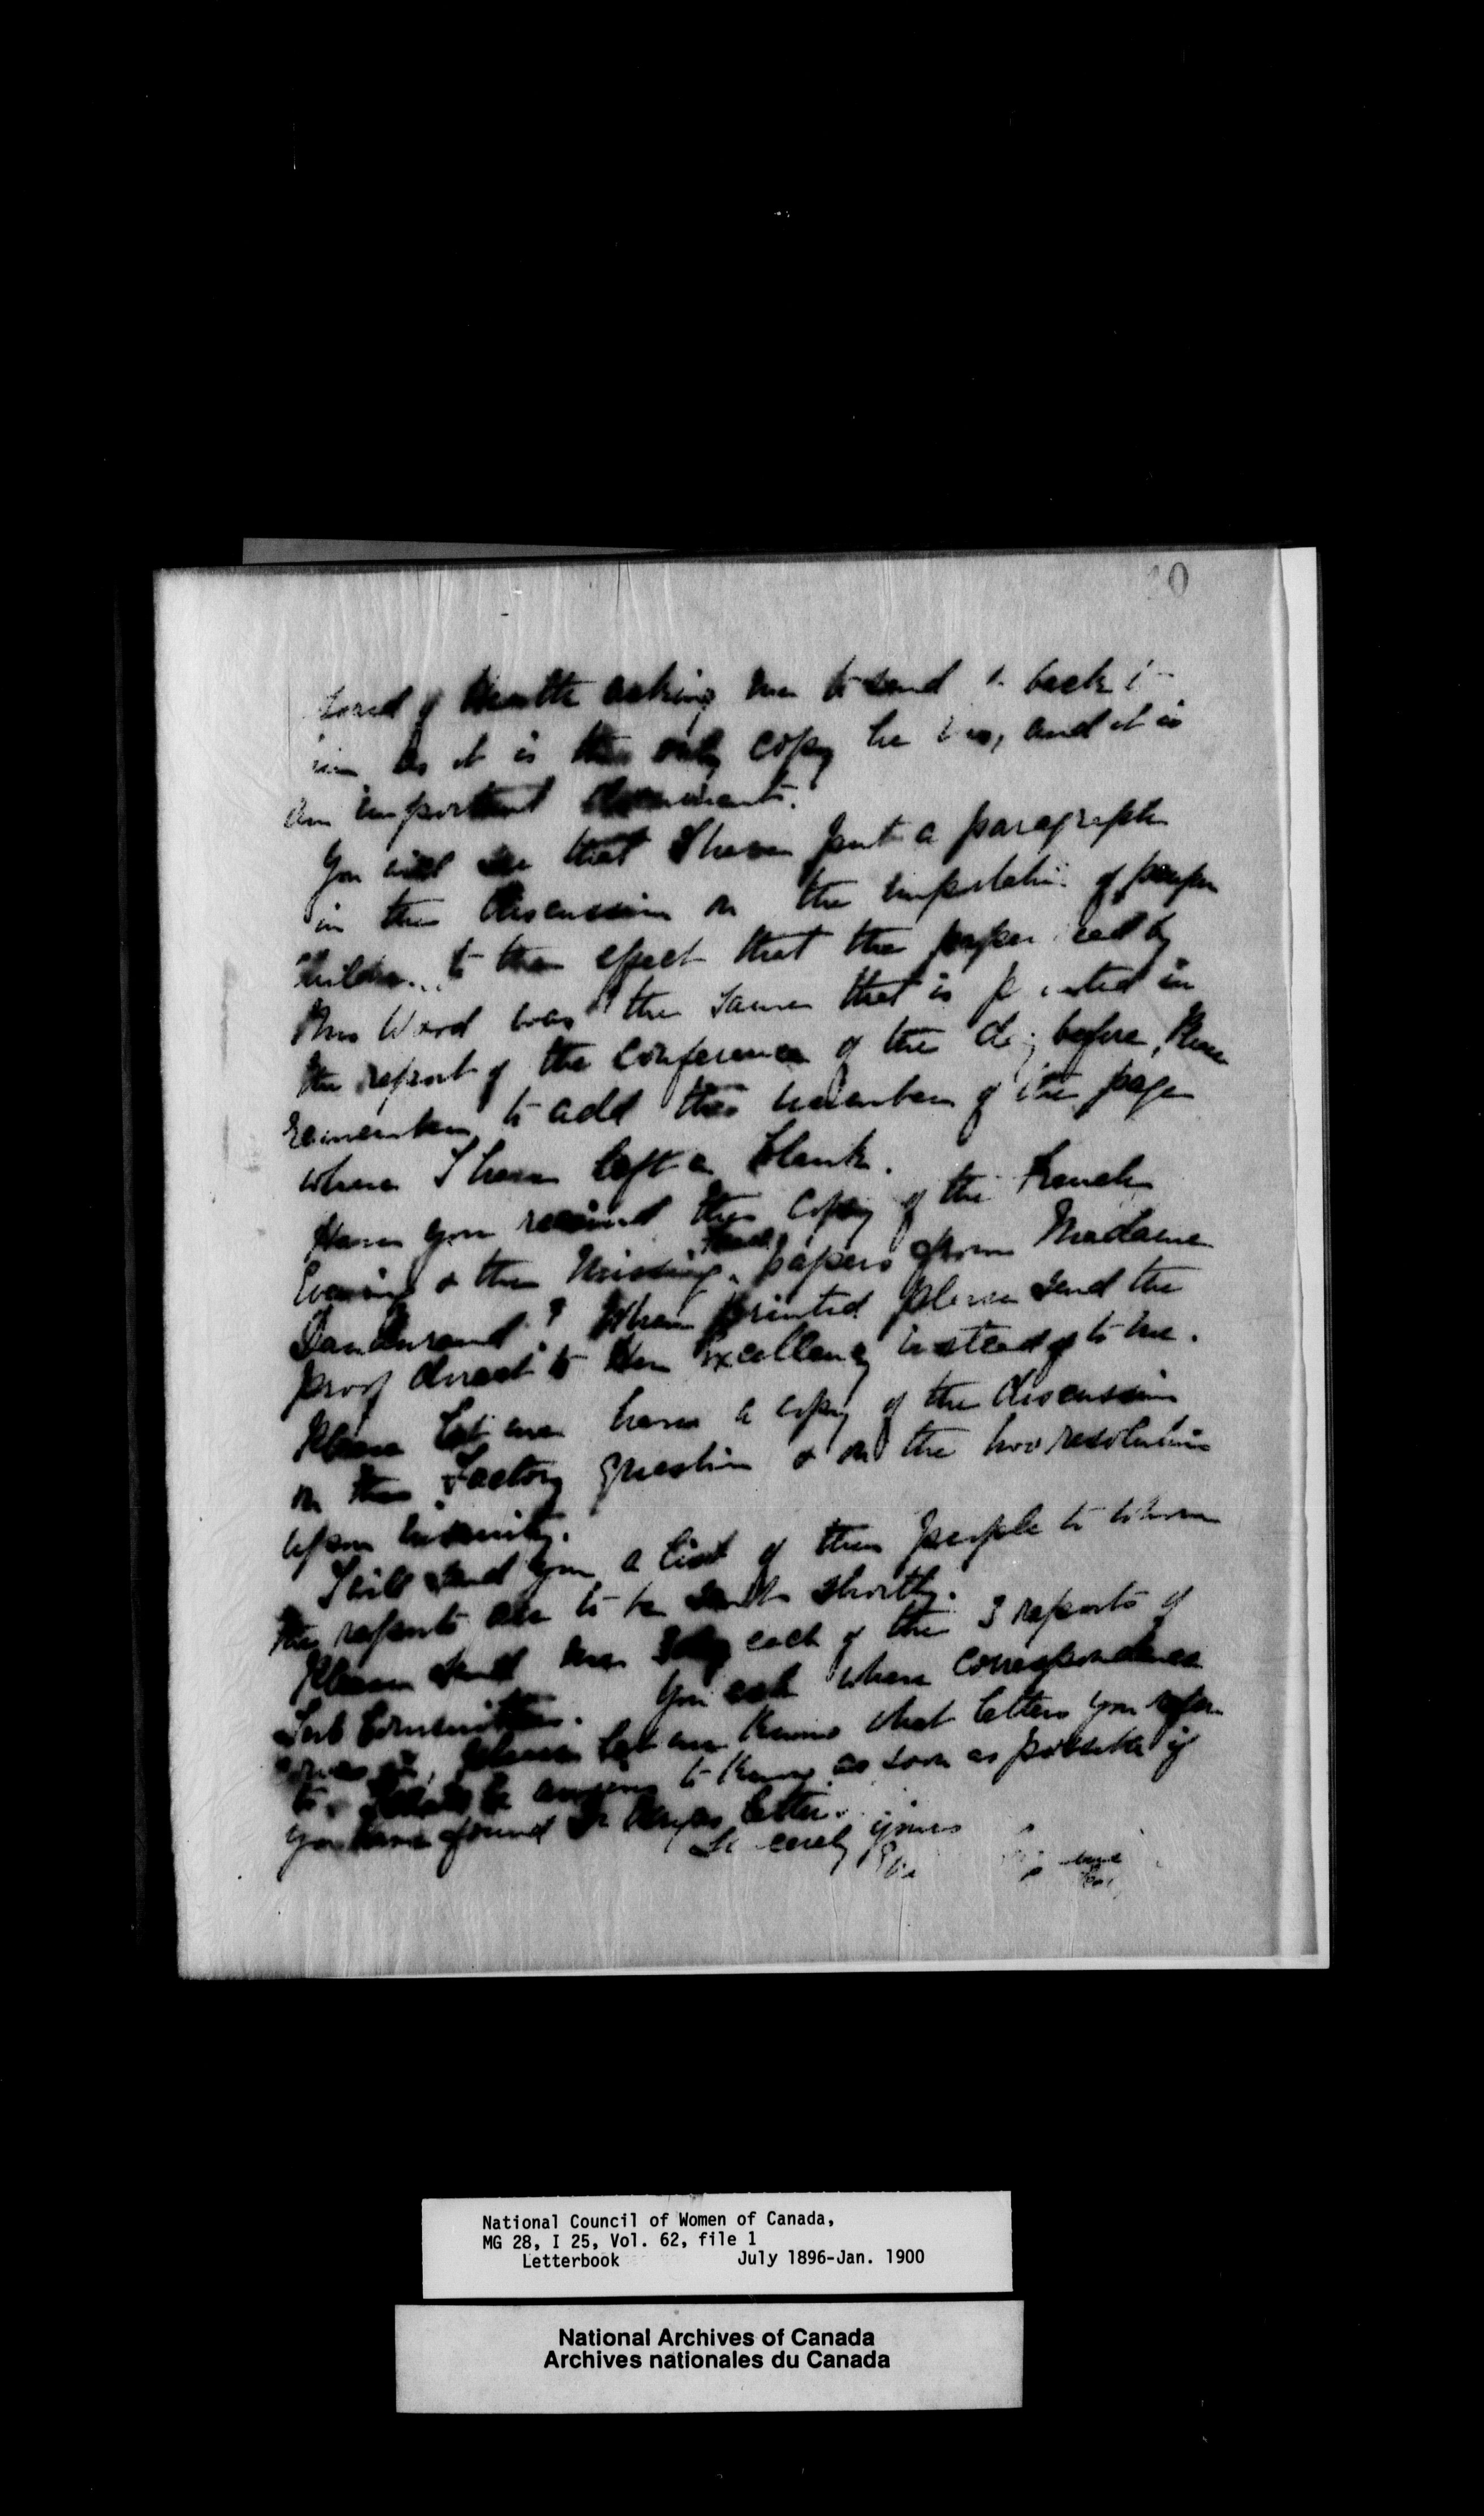 10
Board of Health asking me to send it back to
him as it is the only copy he has, and it is
an important document.
You will see that I have put a paragraph
in the discussion on the importation of pauper
children, to the effect that the paper read by
Mrs Ward was the same that is printed in
the report of the Conference of the day before, Please
remember to add the number of the page
where I have left a blank.
Have you received the copy of the French
Evening & the Missing papers from Madame
Dandurand? When printed please send the
proof direct to Her Excellency instead of to me.
Please let me have a copy of the discussion
on the Factory question & on the two resolutions
upon
I will send you a list of the people to whom
the reports are to be sent shortly.
Please send me each of the 3 reports of
Sub Committees. You ask where correspondence
please let me know what letters you refer
to. to know as soon as possible if
you have found Dr letter.
Sincerely yours
National Council of Women of Canada,
MG 28, I 25, Vol. 62, file 1
Letterbook July 1896-Jan. 1900
National Archives of Canada
Archives nationales du Canada